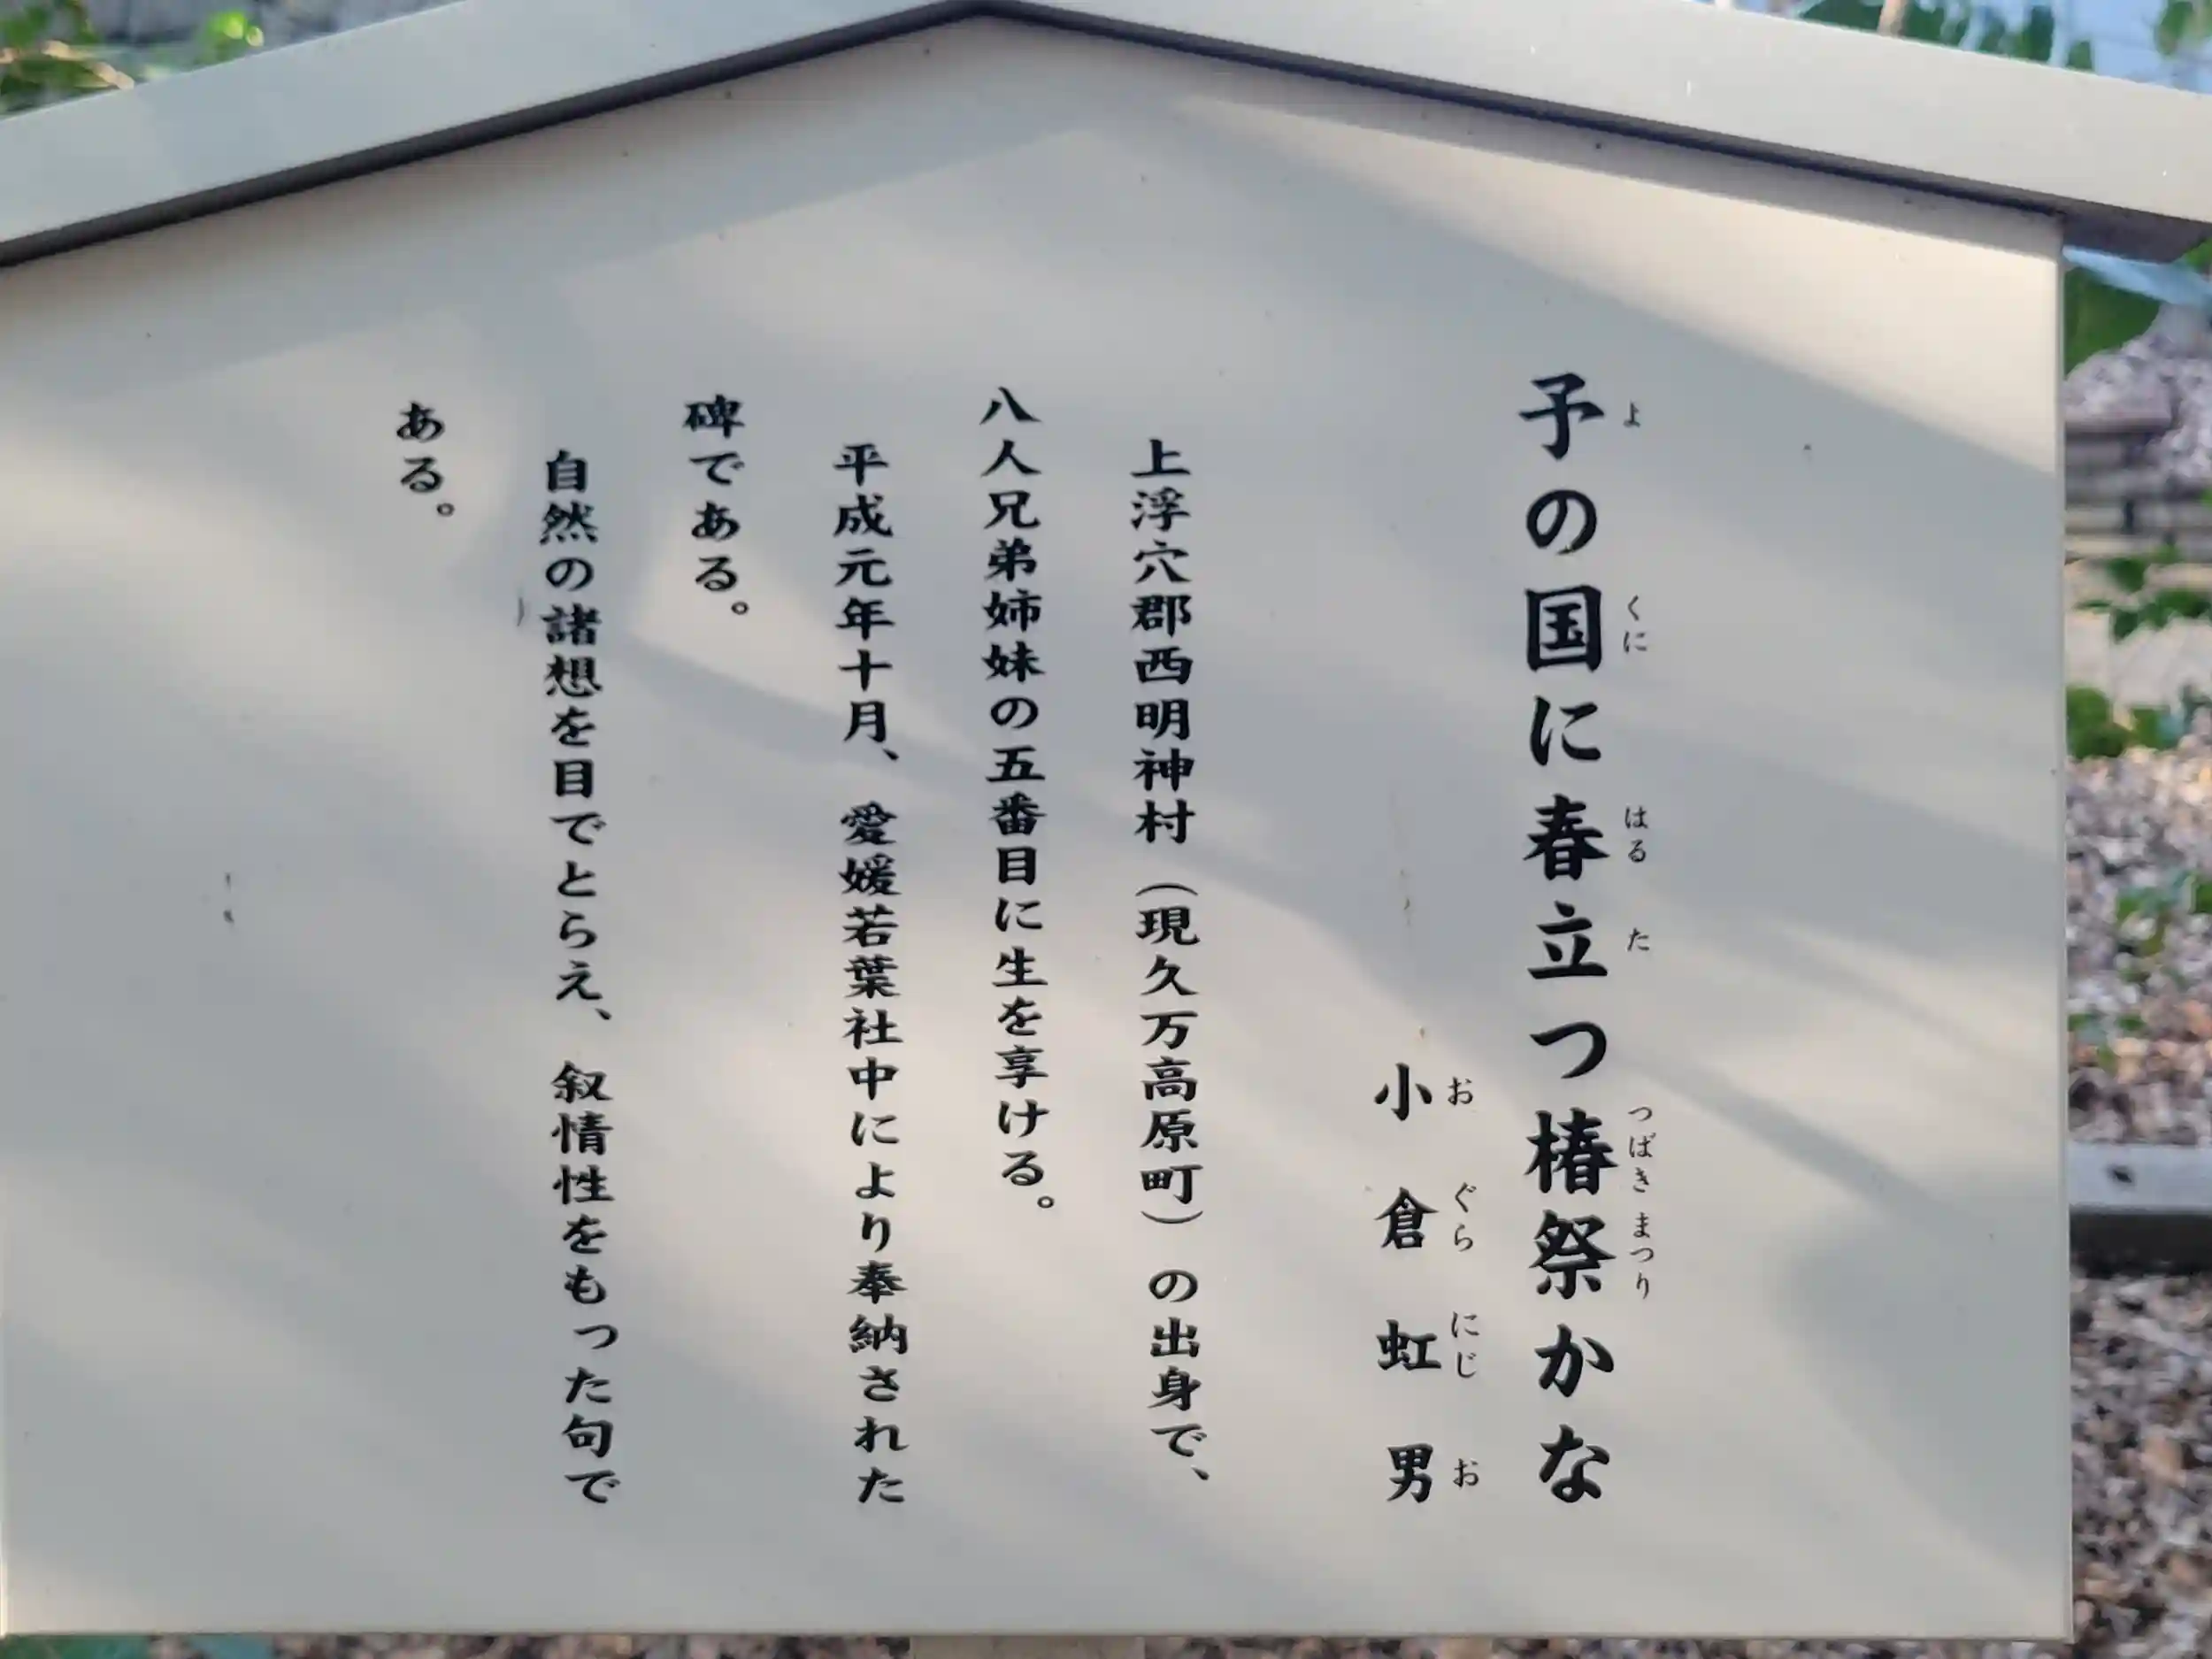 予の国に春立つ椿祭かな
よ くに はる た つばき まつり
小倉虹男
お ぐら にじ お
上浮穴郡西明神村（現久万高原町）の出身で、
八人兄弟姉妹の五番目に生を享ける。
平成元年十月、愛媛若葉社中により奉納された
碑である。
自然の諸想を目でとらえ、叙情性をもった句で
ある。